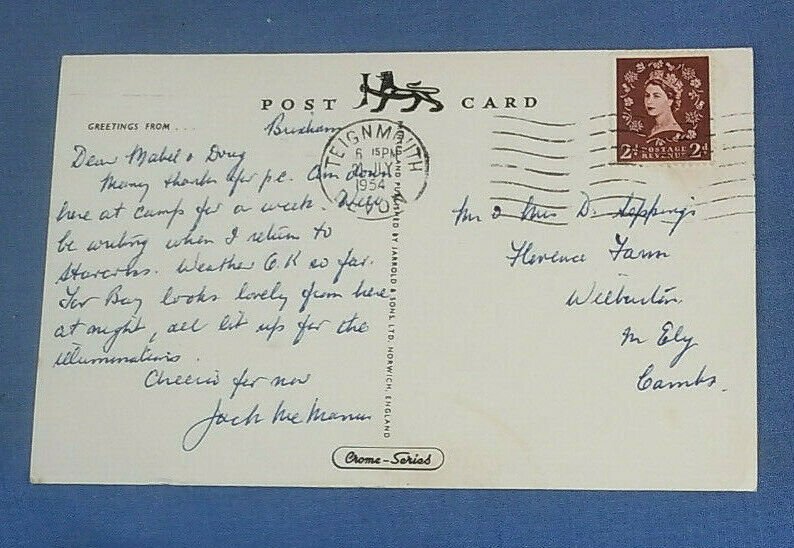 POST CARD
GREETINGS FROM . . .
Brixham
Dear Mabel & Doug
Many thanks for p.c. Am down
here at camp for a week. Will
be writing when I return to
Starcross. Weather O.K so far.
Tor Bay looks lovely from here
at night, all lit up for the
illuminations.
Cheerio for now
Jack McManus
TEIGNMOUTH
6 15PM
JLY
1954
DEVON
PUBLISHED BY JARROLD & SONS, LTD. NORWICH, ENGLAND
Crome-Series
2d POSTAGE REVENUE 2d
Mr & Mrs D.
Florence Farm
Wilburton
Nr Ely
Cambs.